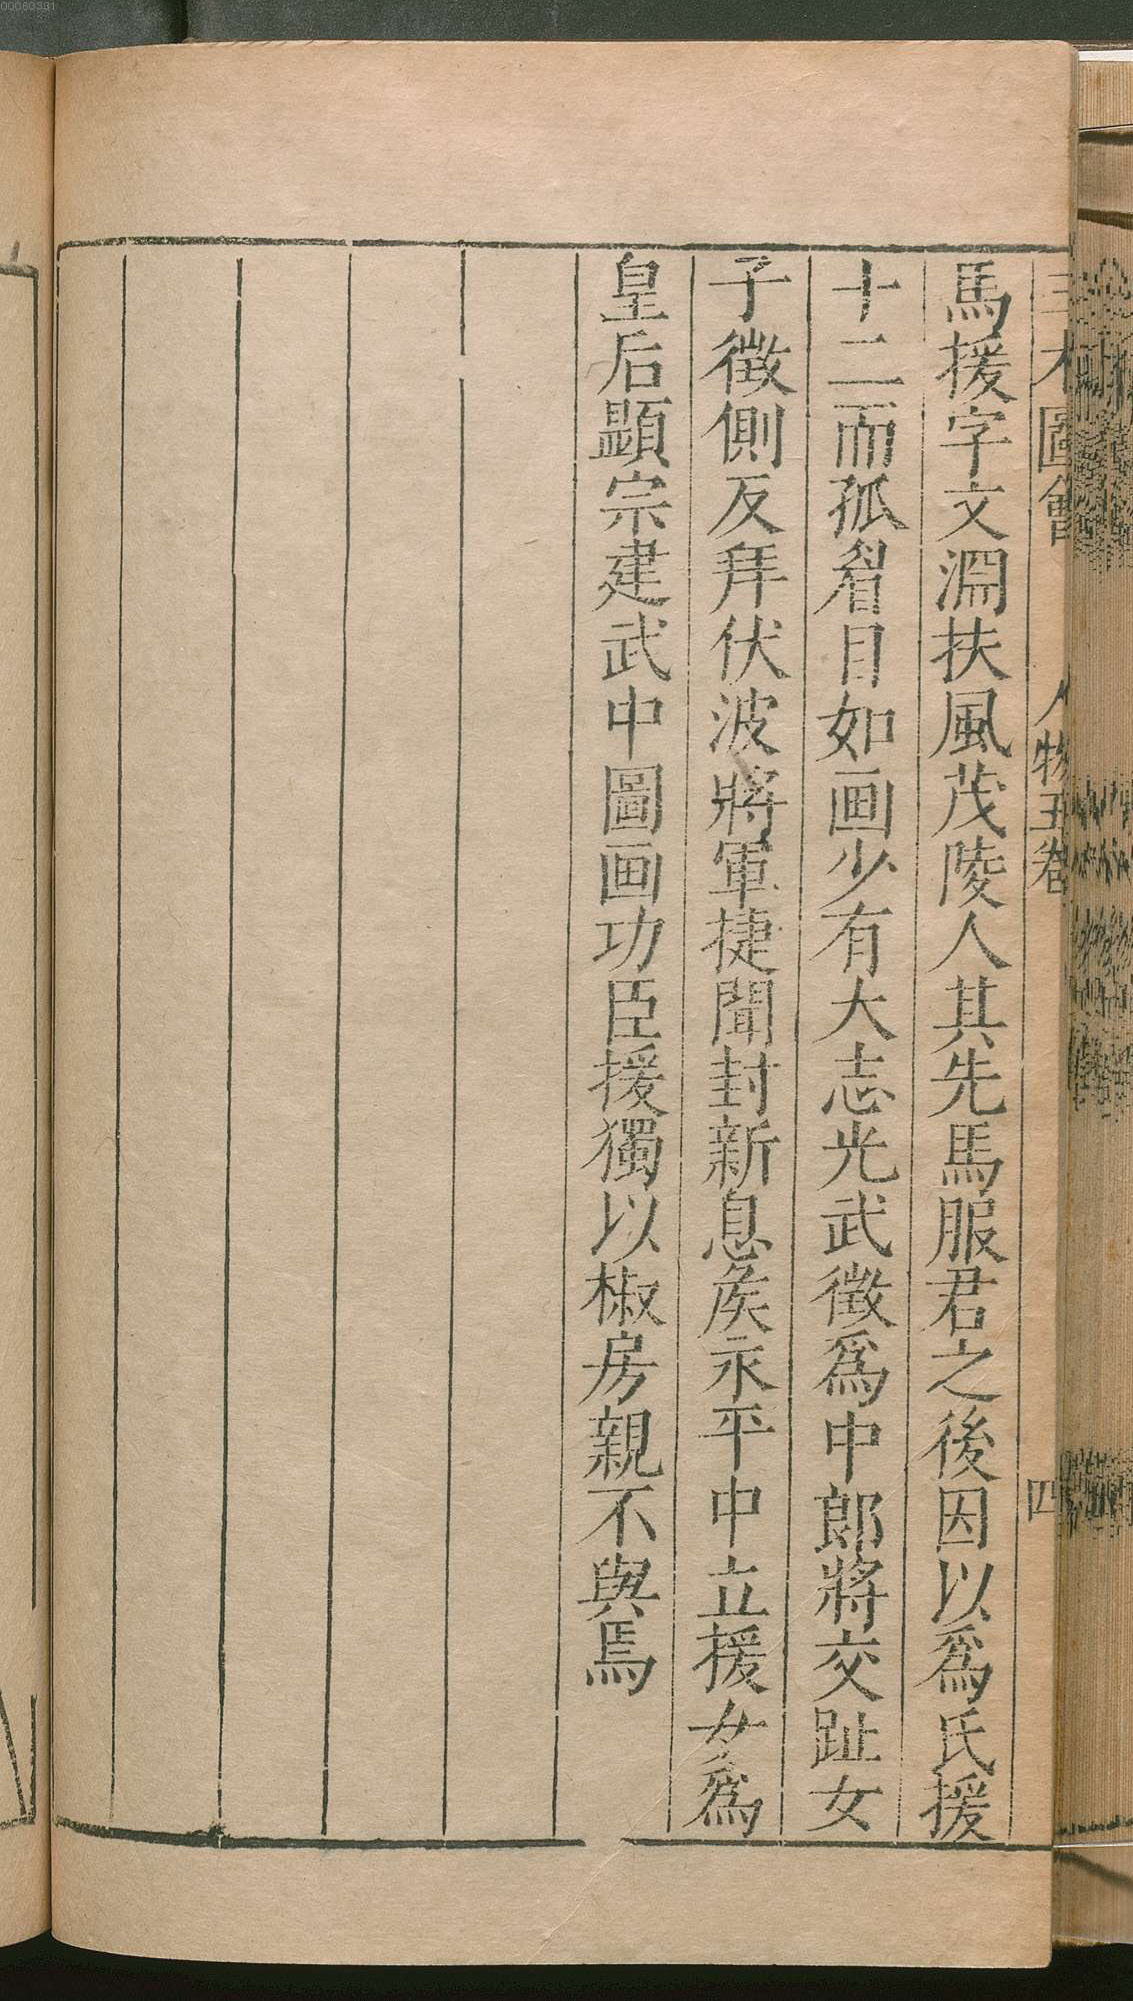 三才圖會 人物五卷 四
馬援字文淵扶風茂陵人其先馬服君之後因以爲氏援
十二而孤眉目如画少有大志光武徵爲中郎將交趾女
子徵側反拜伏波將軍捷聞封新息矦永平中立援女爲
皇后顯宗建武中圖画功臣援獨以椒房親不與焉
00080391